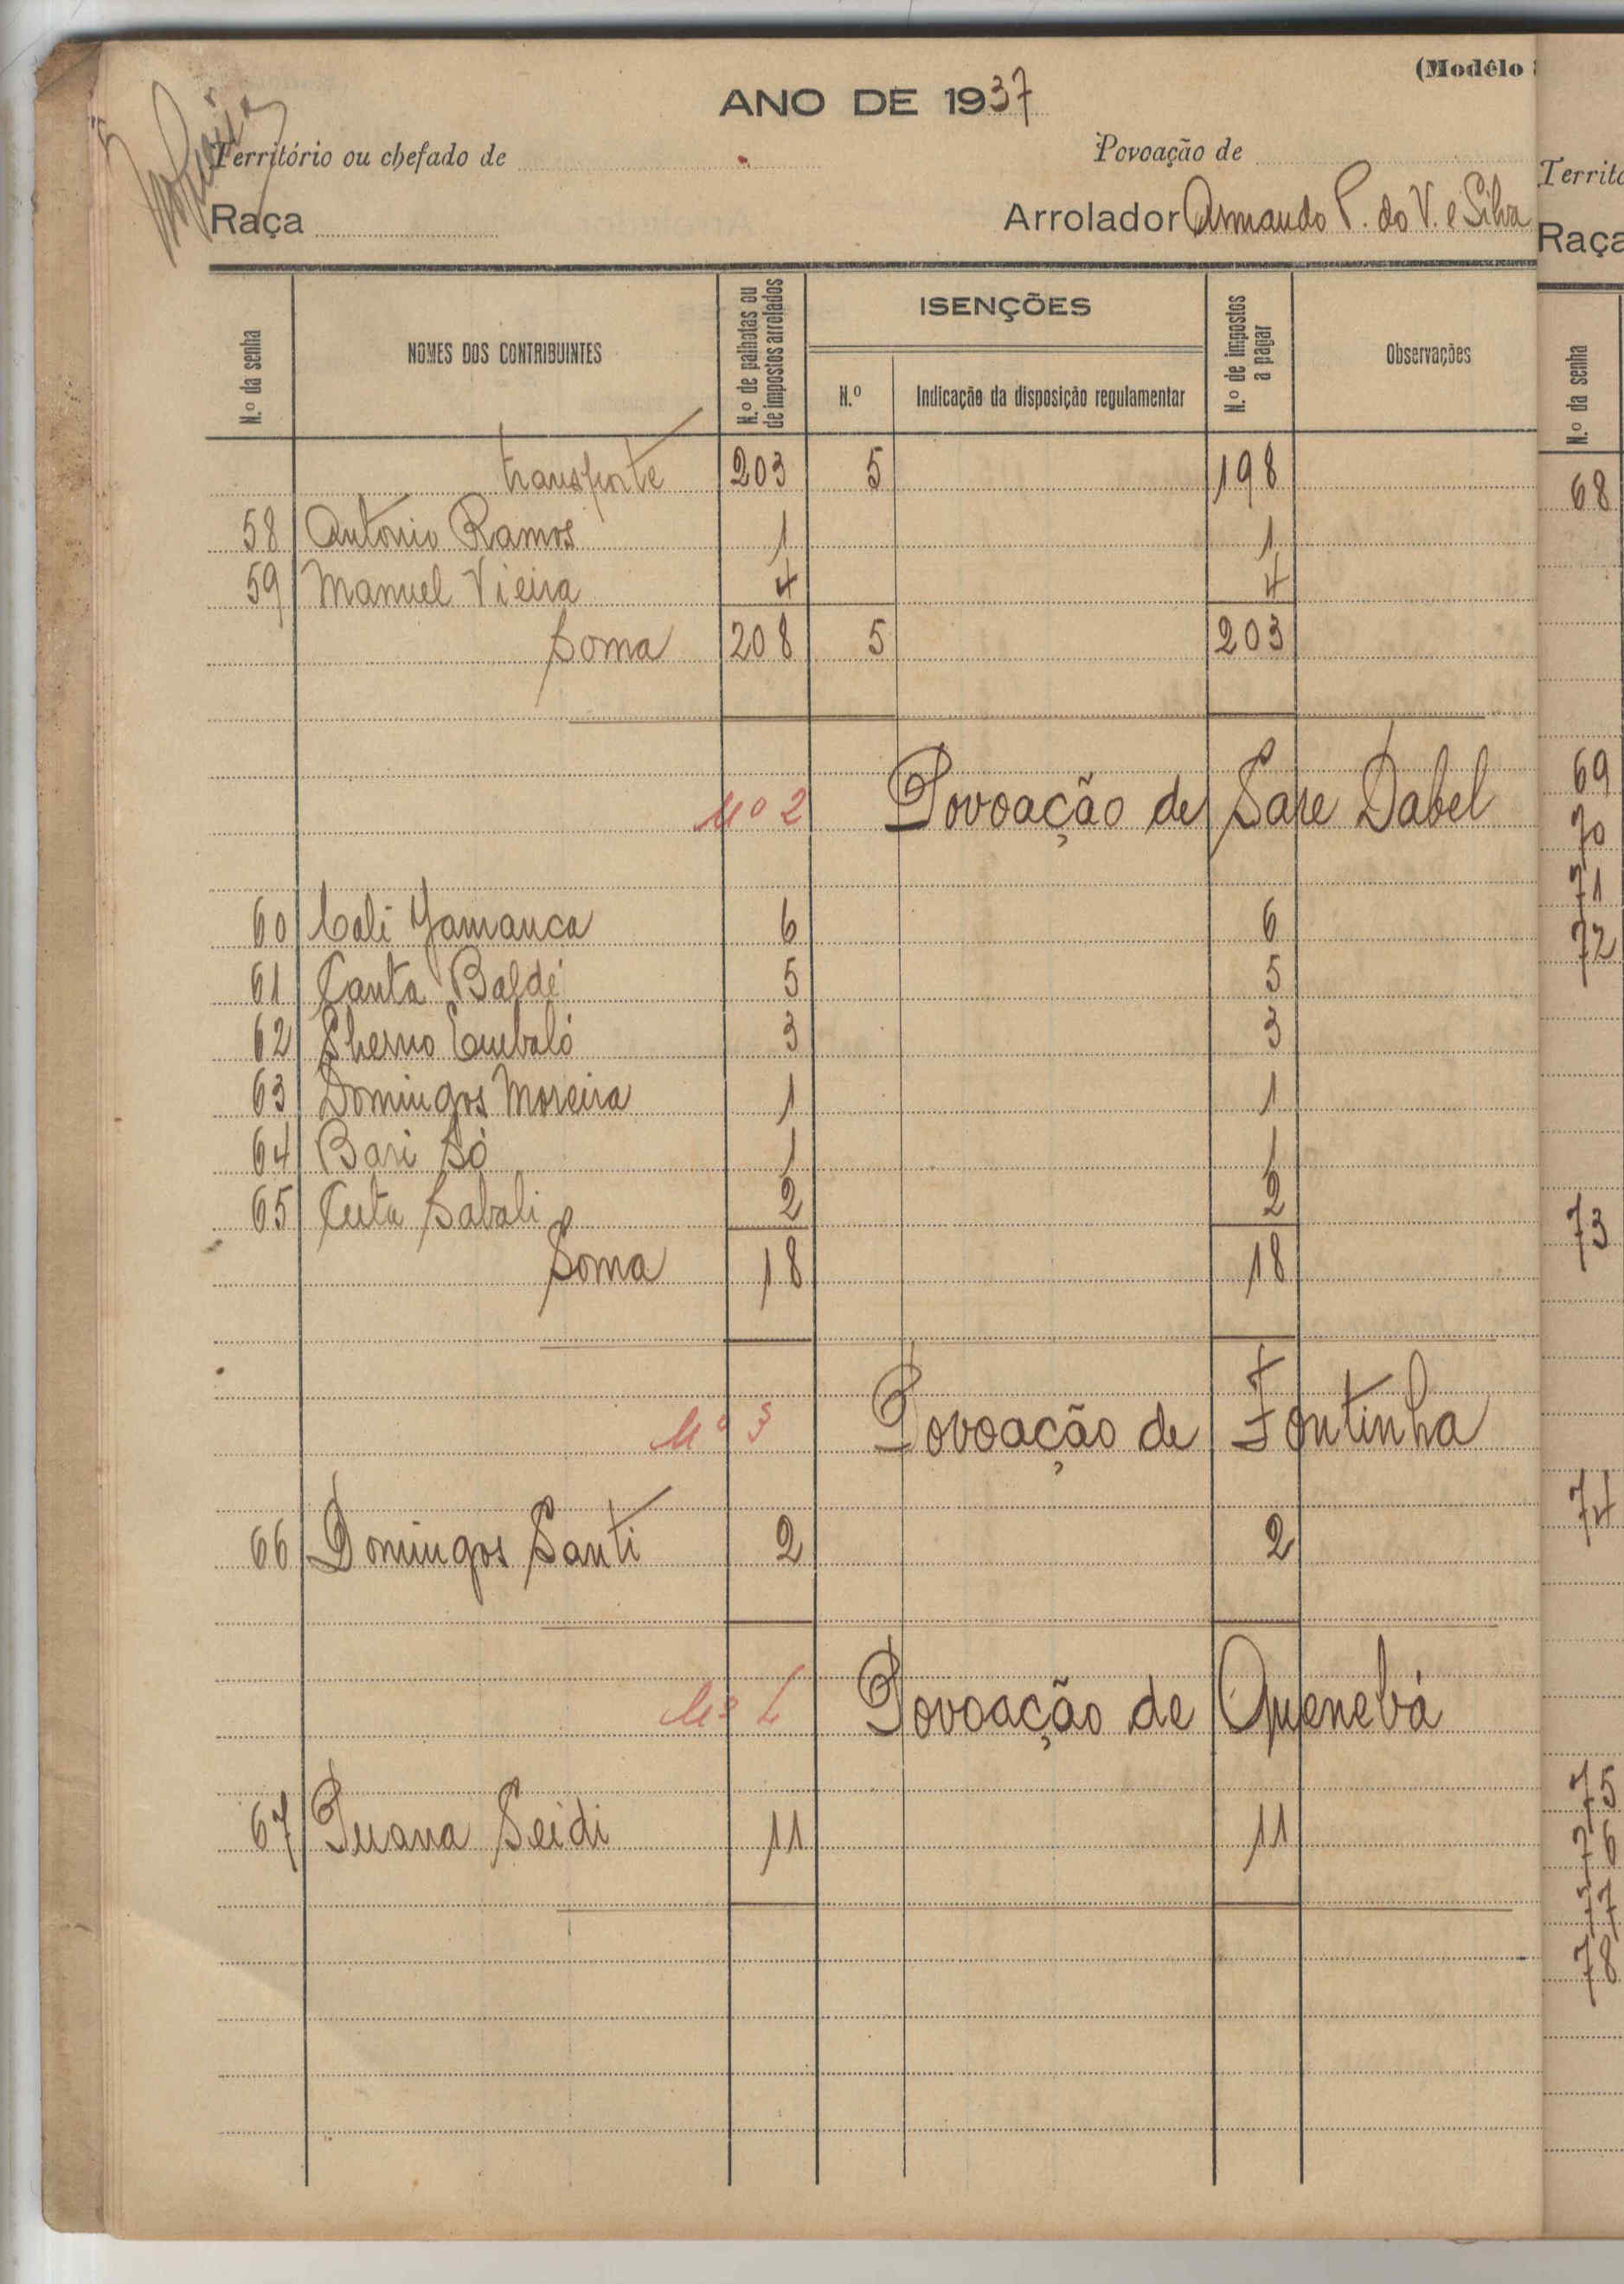 (Modêlo
ANO DE 1937
Território ou chefado de
Povoação de
Raça
Arrolador Armando P. do V. e Silva
N.º da senha
NOMES DOS CONTRIBUINTES
N.º de palhotas ou de impostos arrolados
ISENÇÕES
N.º
Indicação da disposição regulamentar
N.º de impostos a pagar
Observações
transporte 203 5 198
58 António Ramos 1 1
59 Manuel Vieira 4 4
Soma 208 5 203
Nº 2 Povoação de Sare Dabel
60 Cali Jamanca 6 6
61 Canta Baldé 5 5
62 Cherno Embaló 3 3
63 Domingos Moreira 1 1
64 Bari Só 1 1
65 Cuta Sabali 2 2
Soma 18 18
Nº 3 Povoação de Fontinha
66 Domingos Santi 2 2
Nº 4 Povoação de Quenebá
67 Seidi 11 11
Territó
Raça
N.º da senha
68
69
70
71
72
73
74
75
76
77
78